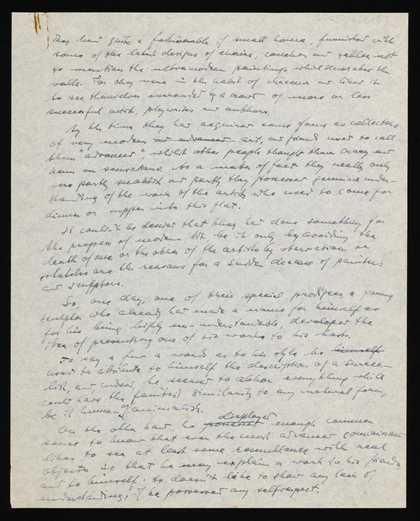 They had quite a fashionable if small house, furnished with
some of the latest designs of chairs, couches and tables not
to mention the ultramodern paintings which decorated the
walls. For they were in the habit of cherish and liked it
to see themselves surrounded by a court of more or less
successful artists, playwrites and authors.
By the time they had acquired some fame as collectors
of very modern art, and friends used to call
them advanced, whilst other people thought them crazy and
keen on sensations. As a matter of fact they really only
were partly snobbish and partly they possessed genuine under-
standing of the work of the artists who used to come for
dinner or supper into their flat.
It couldn't be denied that they had done something for
the progress of modern art be it only by avoiding the
death of one or the other of the artists by starvation or
which are the reasons for a sudden decease of painters
and sculptors.
So, one day, one of their special protégés a young
sculptor who already had made a name for himself as
for his being highly un-understandable, developed the
idea of presenting one of his works to his hosts.
To say a few words as to his style he himself
used to attribute to himself the description of a surrea-
list, and indeed, he seemed to abhor everything which
could have the faintest similarity to any natural form,
be it human or animalistic.
On the other hand he possessed displayed enough common
sense to know that even the most advanced connaisseur
likes to see at least some resemblance with real
objects so that he may explain a work to his friends
and to himself, so doesn't like to show any lack of
understanding, if he possesses any selfrespect.